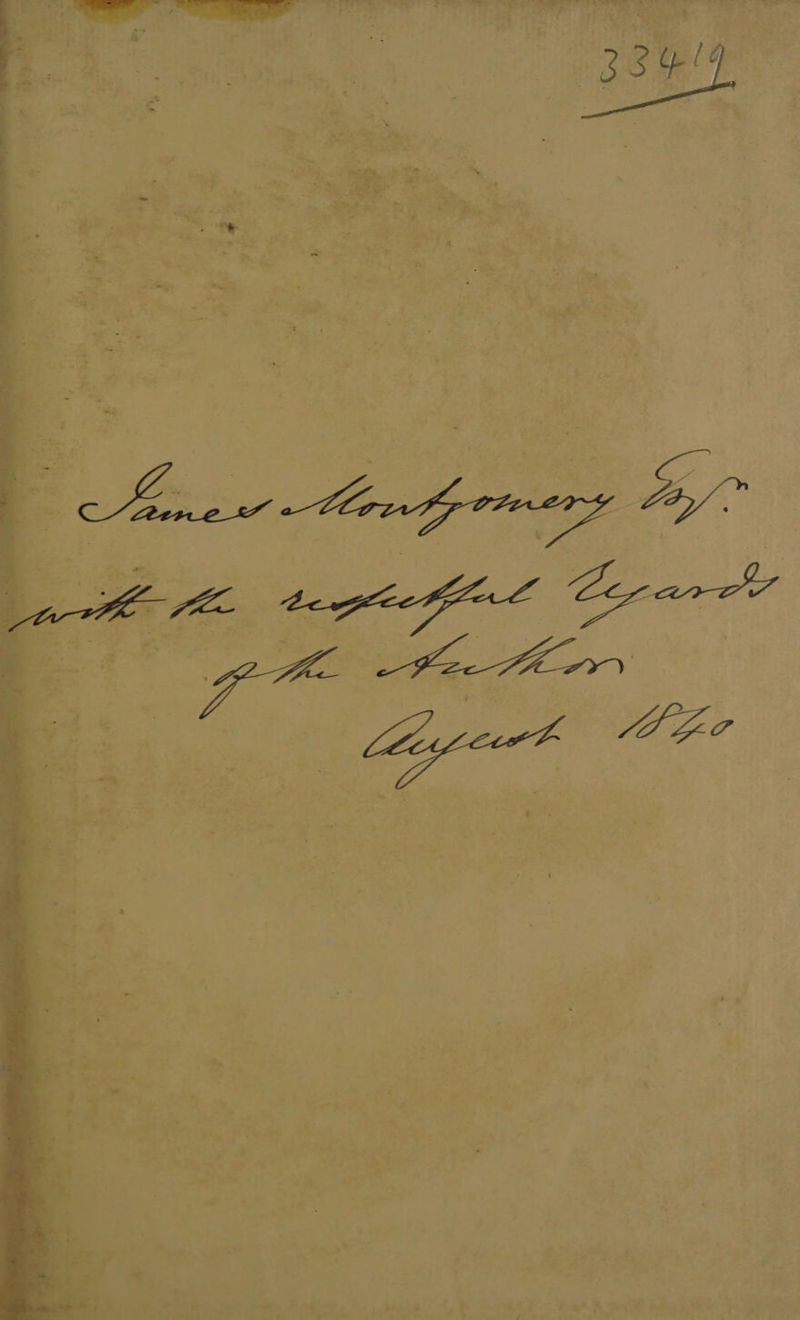 33419
James Montgomery Esqr.
with the respectful regards
of the Author
August 1840